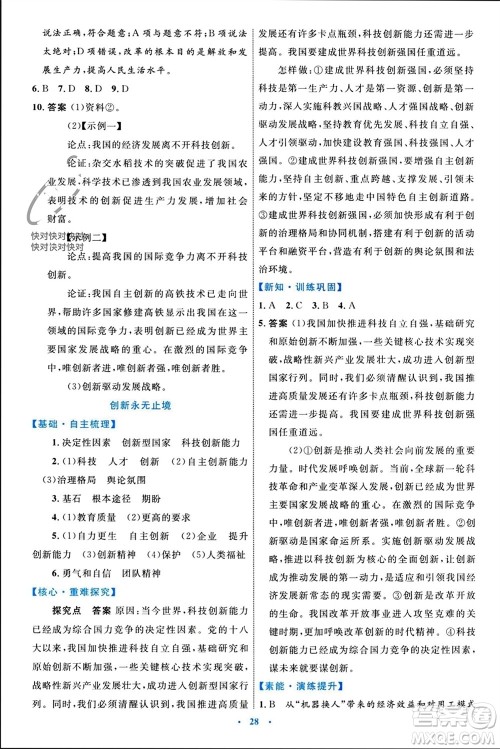 说法正确，符合题意；A 项说法不符合题意；B 项说法
太绝对；D 项错误，改革的根本目的是解放和发展
生产力，提高人民生活水平。
6. B　7. D　8. D　9. D
10. 答案　(1)资料②。
(2)【示例一】
论点：我国的经济发展离不开科技创新。
论证：杂交水稻技术的突破促进了我国农业
发展，科学技术已渗透到我国农业发展领域，
表明技术的创新促进生产发展，增加社会
财富。
【示例二】
快对快对快对
快对决对快对
论点：提高我国的国际竞争力离不开科技
创新。
论证：我国自主创新的高铁技术已走向世
界，帮助许多国家修建高铁也表明我国在这一
领域的国际竞争力。科技创新能力已经越来
越成为综合国力竞争的决定性因素，成为一个
国家发展战略的重心。在激烈的国际竞争中，
唯创新者胜。
(3)创新驱动发展战略。
创新永无止境
【基础·自主梳理】
1. 决定性因素　创新型国家　科技创新能力
2. (1)科技　人才　创新　(2)自主创新能力
(3)治理格局　舆论氛围
3. 基石　根本途径　期盼
4. (1)教育质量　(2)更高的要求
5. (1)生力军　自主创新　(2)企业　提升
(3)创新精神　(4)保护　(5)人类福祉
6. 勇气和自信　团队精神
【核心·重难探究】
探究点　答案　原因：当今世界，科技创新能力
已经成为综合国力竞争的决定性因素。党的十八
大以来，我国科技整体能力持续提升，在一些重要
领域已走在世界前列。但从整体上看，我国仍面临
一些关键核心技术创新能力不强、科技成果转化能
力不强、人才发展体制机制还不完善等突出问题，
28
发展还有许多卡点瓶颈，科技创新能力还不能适应
高质量发展要求。我国要建设创新型国家和世界
科技强国，必须进一步提高自主创新能力。因此，
我国建成世界科技创新强国任重道远。
怎样做：①建成世界科技创新强国，必须坚持
科技是第一生产力、人才是第一资源、创新是第一
动力，深入实施科教兴国战略、人才强国战略、创新
驱动发展战略。②建设世界科技创新强国，必须加
快推进教育现代化、建设教育强国、办好人民满意
的教育。③建设世界科技创新强国，必须加快推进
科技自立自强，增强自主创新能力，不断攻克关键
核心技术，实现重点跨越，坚定不移走中国特色自
主创新道路，大力实施创新驱动发展战略。④建设
世界科技创新强国，需要形成有利于创新的治理格
局和协同机制，搭建有利于创新的活动平台和融资
平台，营造有利于创新的舆论氛围和法治环境。
【新知·训练巩固】
1. A　2. C　3. B　4. A
5. 答案　(1)我国加快推进科技自立自强，基础研究
和原创不断加强，一些关键核心技术实现突破，战
略性新兴产业发展壮大，我国已进入创新型国家
行列。但我们必须清醒认识到，我国在推进高质
量发展方面还有许多卡点瓶颈，科技创新能力还
不能适应高质量发展要求。我国要建设创新型国
家和世界科技强国，必须进一步提高自主创新
能力。
(2)①创新是推动人类社会向前发展的重要
力量。时代发展呼唤创新，全球新一轮科技革命
和产业变革加速演进，创新已经成为世界主要国
家发展战略的重心。在激烈的国际竞争中，唯创
新者进，唯创新者强，唯创新者胜。②创新驱动是
国家命运所系。创新是引领发展的第一动力。科
技创新能力已经越来越成为综合国力竞争的决定
性因素。③我国经济发展进入新常态，传统发展
动力不断减弱，粗放型增长方式难以为继。创新
是改革开放的生命，改革在不断创新中提升发展
品质，创新通过改革渗透到社会生活的各个方面。
④当前，我国改革开放事业进入攻坚克难的关键
时期，更加呼唤改革创新的时代精神，惟改革才能
谋未来创新。
【素能·演练提升】
1. B　从“机器换人”带来的经济效益和对用工模式